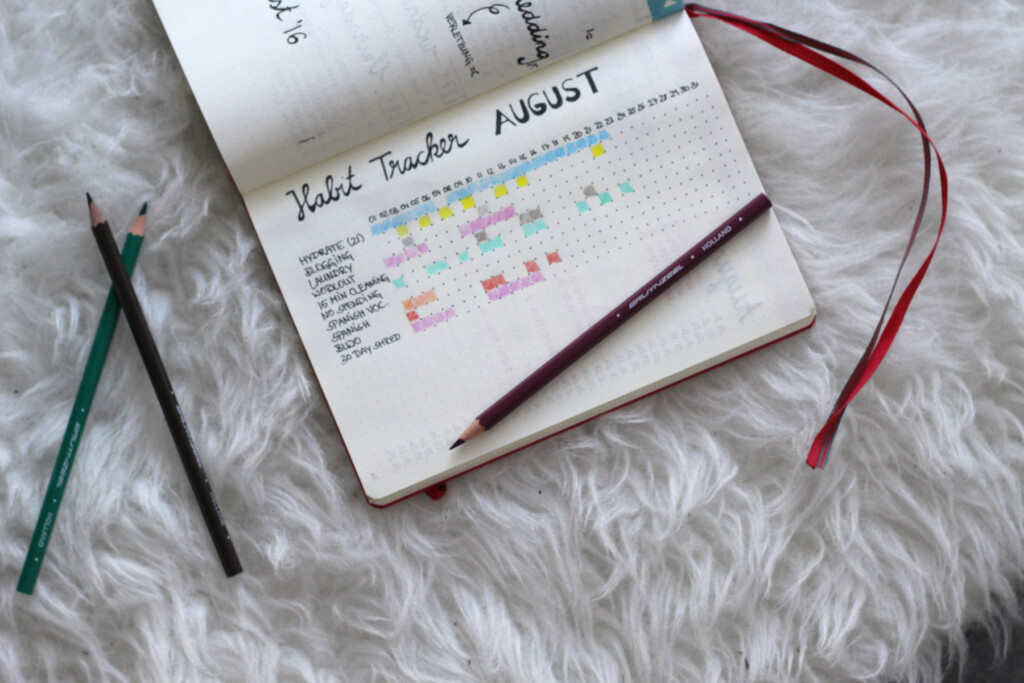 '16
Habit Tracker AUGUST
01 02 03 04 05 06 07 08 09 10 11 12 13 14 15 16 17 18 19 20 21 22 23 24 25 26 27 28 29 30 31
HYDRATE (2l)
BLOGGING
LAUNDRY
WORKOUT
15 MIN CLEANING
NO SPENDING
SPANISH VOC.
SPANISH
BUJO
30 DAY SHRED
BRUYNZEEL HOLLAND
BRUYNZEEL HOLLAND